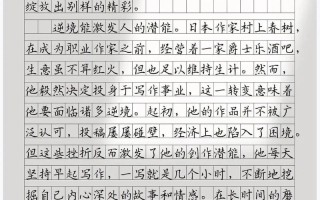 绽放出别样的精彩。
逆境能激发人的潜能。日本作家村上春树，
在成为职业作家之前，经营着一家爵士乐酒吧，
生意虽不算红火，但也足以维持生计。然而，
他毅然决定投身于写作事业，这一转变意味着
他要面临诸多逆境。起初，他的作品并不被广
泛认可，投稿屡屡碰壁，经济上也陷入了困境。
但这些挫折反而激发了他的创作潜能，他每天
坚持早起写作，一写就是几个小时，不断地挖
掘自己内心深处的故事和情感。在长时间的磨